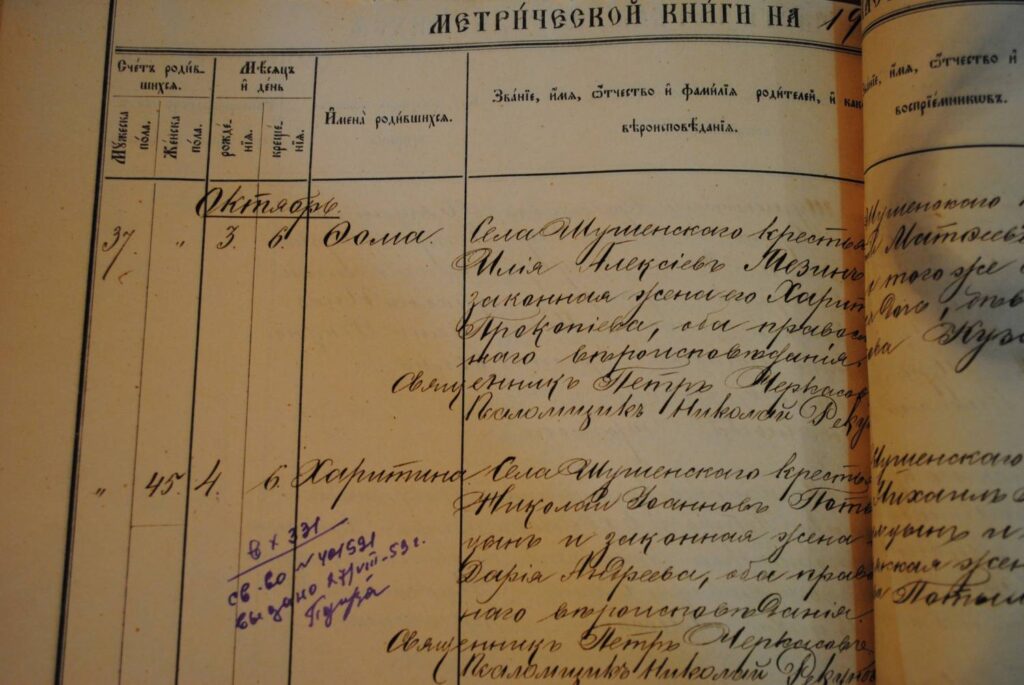 МЕТРИ́ЧЕСКОЙ КНИ́ГИ НА 19
Сче́тъ роди́в-
шихся.
Му́жеска
по́ла.
Же́нска
по́ла.
Мѣ́сяцъ
и де́нь
рожде́-
нія.
креще́-
нія.
И҆мена̀ роди́вшихся.
Зва́ніе, и҆́мя, ѻ҆́тчество и҆ фами́лія роди́телей, и҆ как
вѣроисповѣ́данія.
Зва́ніе, и҆́мя, ѻ҆́тчество и҆
воспрїе́мниковъ.
Октябрь.
37. " 3. 6. Ѳома. Села Шушенскаго кресть
Илія Алексіевъ Мезинъ
законная жена его Харит
Прокопіева, оба правос
наго вѣроисповѣданія.
Священникъ Петръ Черкасов
Псаломщикъ Николай
Шушенскаго
Матѳеевъ
и того же
" 45. 4. 6. Харитина Села Шушенскаго кресть
Николай Іоанновъ Поты
цынъ и законная жена
Дарія Андреева, оба право
наго вѣроисповѣданія.
Священникъ Петръ Черкасовъ
Псаломщикъ Николай
Шушенскаго
Михаилъ
вх 331
св-во № 401591
выдано 27/VIII-59 г.